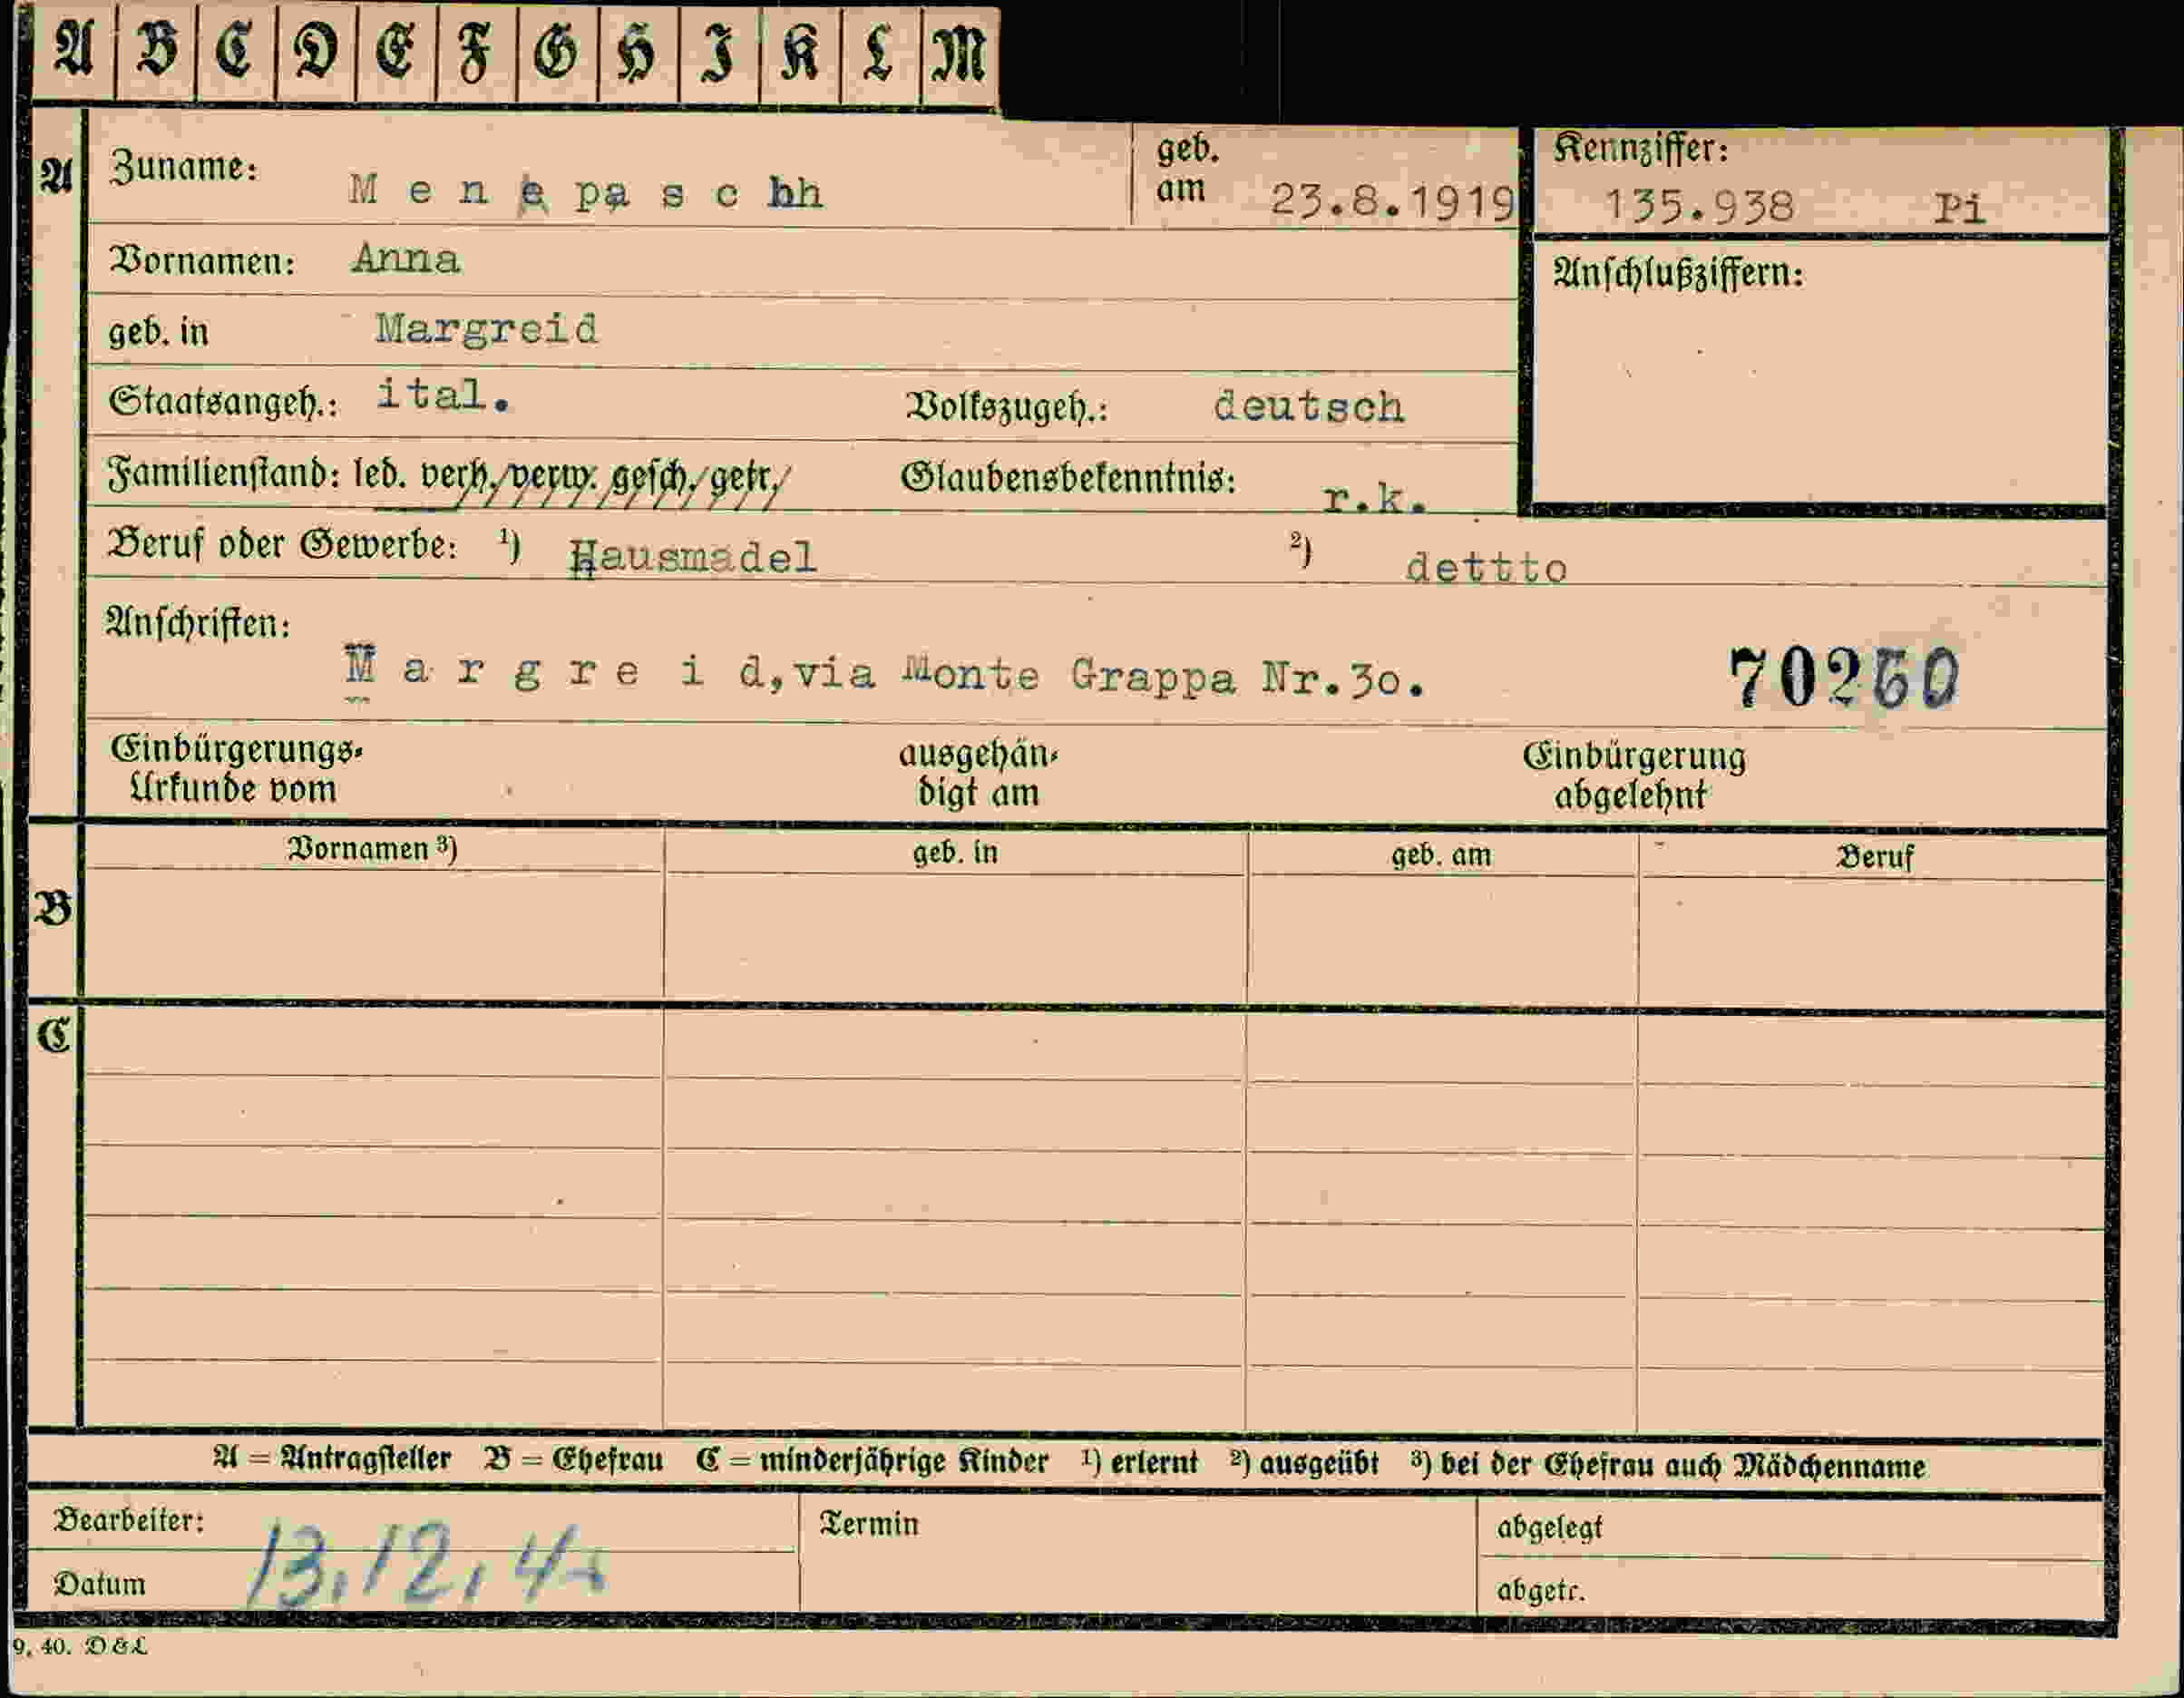 A B C D E F G H I K L M
A Zuname: Menapasch geb. am 23.8.1919 Kennziffer: 135.938 Pi
Vornamen: Anna Anschlußziffern:
geb. in Margreid
Staatsangeh.: ital. Volkszugeh.: deutsch
Familienstand: led. verh. verw. gesch. getr. Glaubensbekenntnis: r.k.
Beruf oder Gewerbe: ¹) Hausmädel ²) dettto
Anschriften:
Margreid, via Monte Grappa Nr.30. 70260
Einbürgerungs- ausgehän- Einbürgerung
Urkunde vom digt am abgelehnt
Vornamen ³) geb. in geb. am Beruf
B
C
A = Antragsteller B = Ehefrau C = minderjährige Kinder ¹) erlernt ²) ausgeübt ³) bei der Ehefrau auch Mädchenname
Bearbeiter: Termin abgelegt
Datum abgetr.
9. 40. D & L